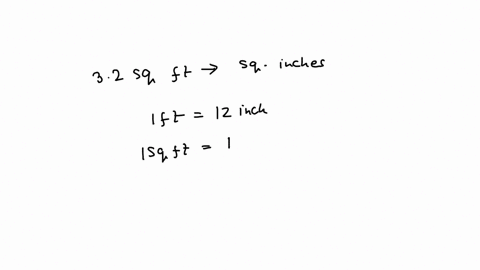 3.2 sq ft → sq. inches
1ft = 12 inch
1sq ft = 1